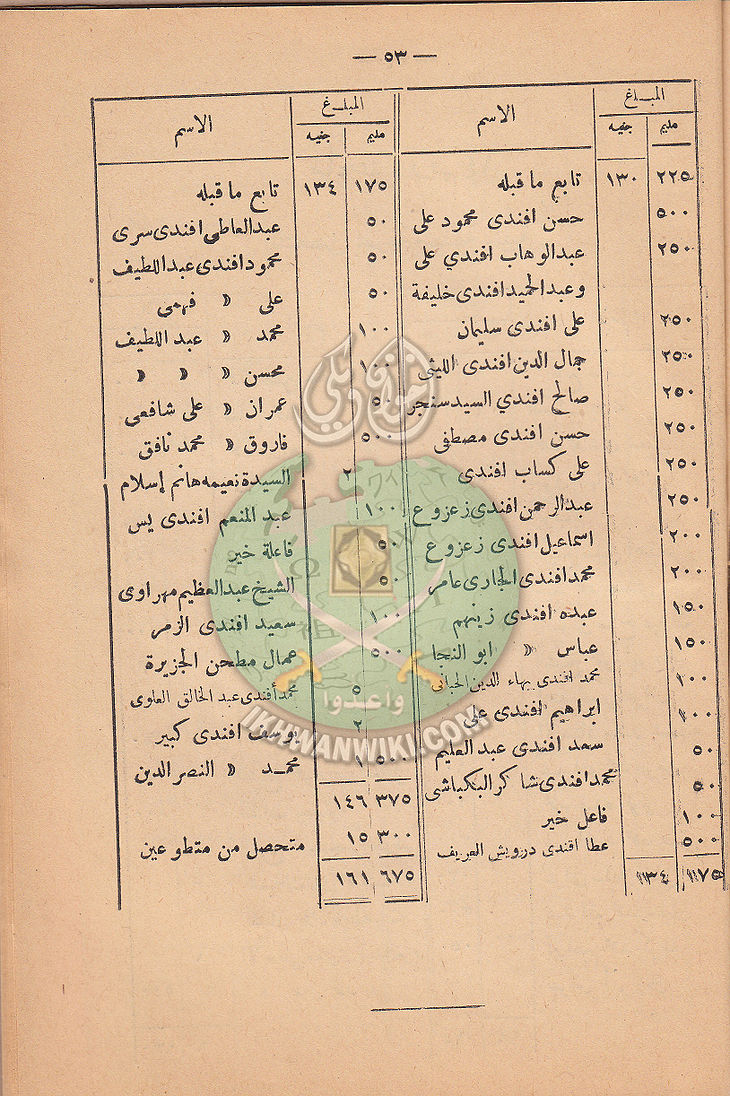 — ٥٣ —
المبلـغ
الاسم
مليم
جنيه
٢٢٥ ١٣٠ تابع ما قبله
٥٠٠ حسن افندى محمود على
٢٥٠ عبدالوهاب افندي على
وعبدالحميد افندى خليفة
٢٥٠ على افندى سليمان
٢٥٠ جمال الدين افندى الليثى
٢٥٠ صالح افندي السيد سنجر
٢٥٠ حسن افندى مصطفى
٢٥٠ على كساب افندى
٢٥٠ عبدالرحمن افندى زعزوع
٢٠٠ اسماعيل افندى زعزوع
٢٠٠ محمد افندى الجارى عامر
١٥٠ عبده افندى زينهم
١٥٠ عباس » ابو النجا
١٠٠ محمد افندى بهاء الدين
١٠٠ ابراهيم افندى على
٥٠ سعد افندى عبد العليم
٥٠ محمد افندى شاكر البكباشى
١٠٠ فاعل خير
٥٠٠ عطا افندى درويش العريف
١٧٥ ١٣٤
المبلـغ
الاسم
مليم
جنيه
١٧٥ ١٣٤ تابع ما قبله
٥٠ عبدالعاطى افندى سرى
٥٠ محمود افندى عبداللطيف
٥٠ على » فهمى
١٠٠ محمد » عبد اللطيف
١٠٠ محسن » » »
٥٠ عمران » على شافعى
٥٠٠ فاروق » محمد نافق
٢ السيدة نعيمه هانم إسلام
١٠٠ عبد المنعم افندى يس
٥٠ فاعلة خير
٥٠ الشيخ عبدالعظيم مهراوى
١٠٠ سعيد افندى الزمر
٥٠٠ عمال مطحن الجزيرة
٥ محمد أفندى عبد الخالق العلوى
٢ يوسف افندى كبير
٥٠٠ ١ محمـد » النصر الدين
٣٧٥ ١٤٦
٣٠٠ ١٥ متحصل من متطوعين
٦٧٥ ١٦١
اخوان ويكي
وأعدوا
IKHWANWIKI.COM